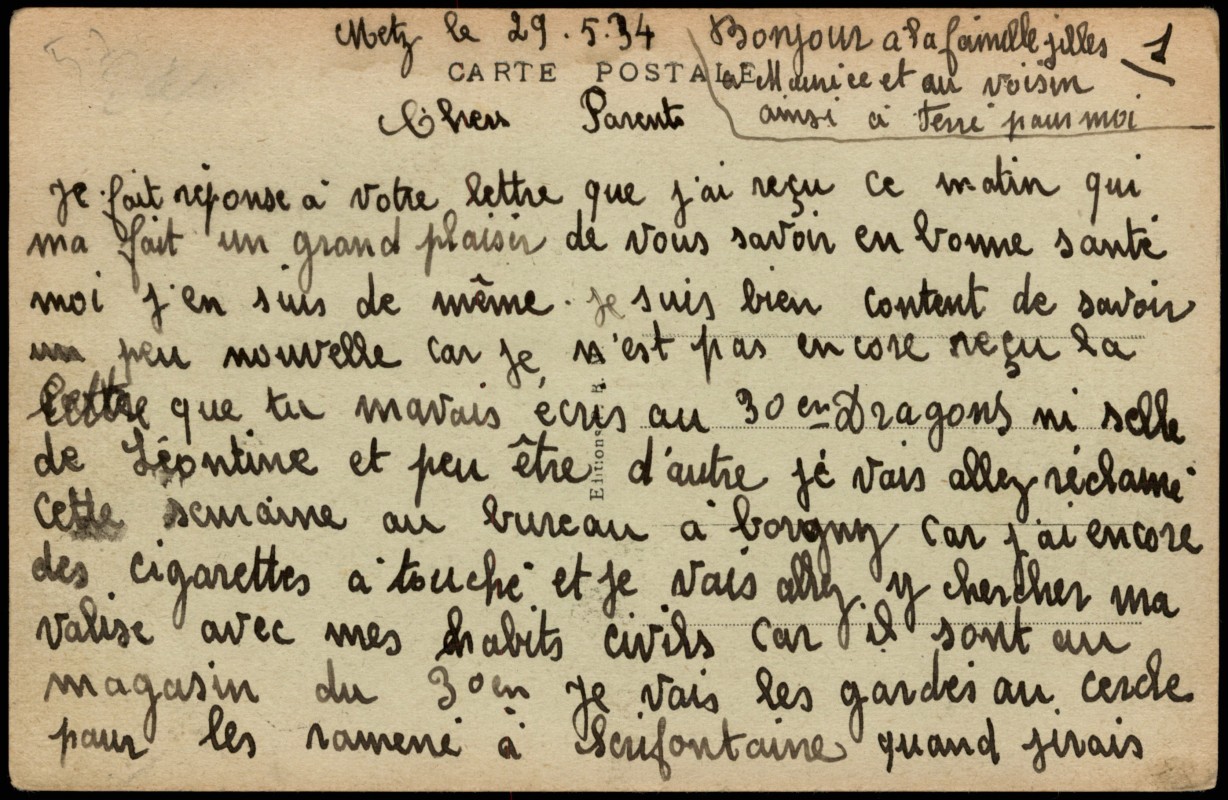 Metz le 29.5.34
Bonjour a la famille jilles
a Maurice et au voisin
ainsi a Terré pour moi
1
CARTE POSTALE
Chers Parents
Je fait réponse à votre lettre que j'ai reçu ce matin qui
ma fait un grand plaisir de vous savoir en bonne santé
moi j'en suis de même. Je suis bien content de savoir
un peu nouvelle car je n'est pas encore reçu la
lettre que tu mavais écris au 30 en Dragons ni selle
de Léontine et peu être d'autre je vais allez réclamé
cette semaine au bureau à borgny car j'ai encore
des cigarettes a touché et je vais allez y chercher ma
valise avec mes habits civils car il sont au
magasin du 30 en Je vais les gardés au cercle
pour les ramené à Serifontaine quand jirais
Editions